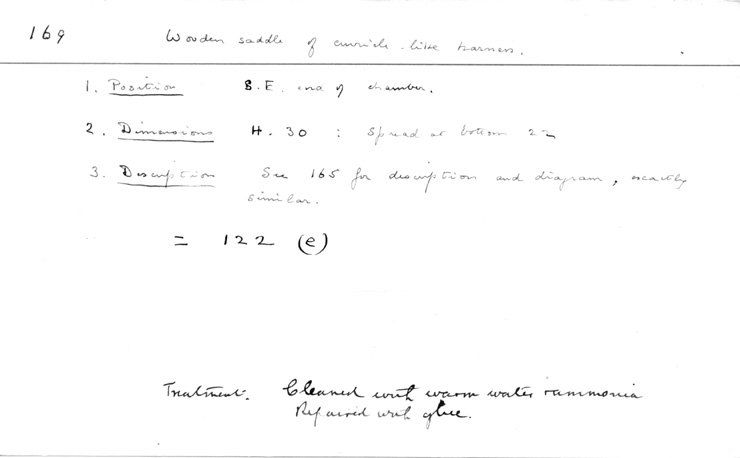 169 Wooden saddle of curricle-like harness.
1. Position S.E. end of chamber.
2. Dimensions H. 30 : Spread at bottom 22
3. Description See 165 for description and diagram, exactly
similar.
= 122 (e)
Treatment. Cleaned with warm water & ammonia
Repaired with glue.